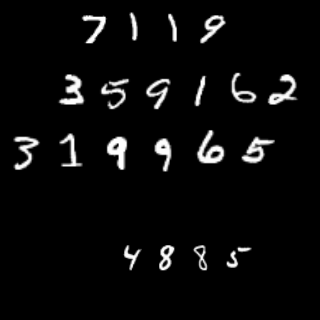 7119
359162
319965
4885